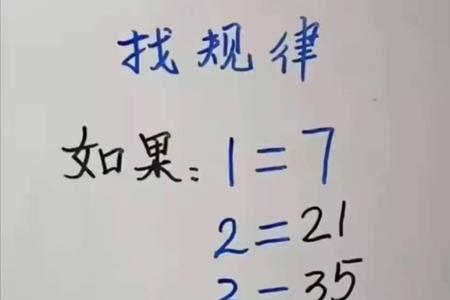 找规律
如果：1=7
2=21
3=35